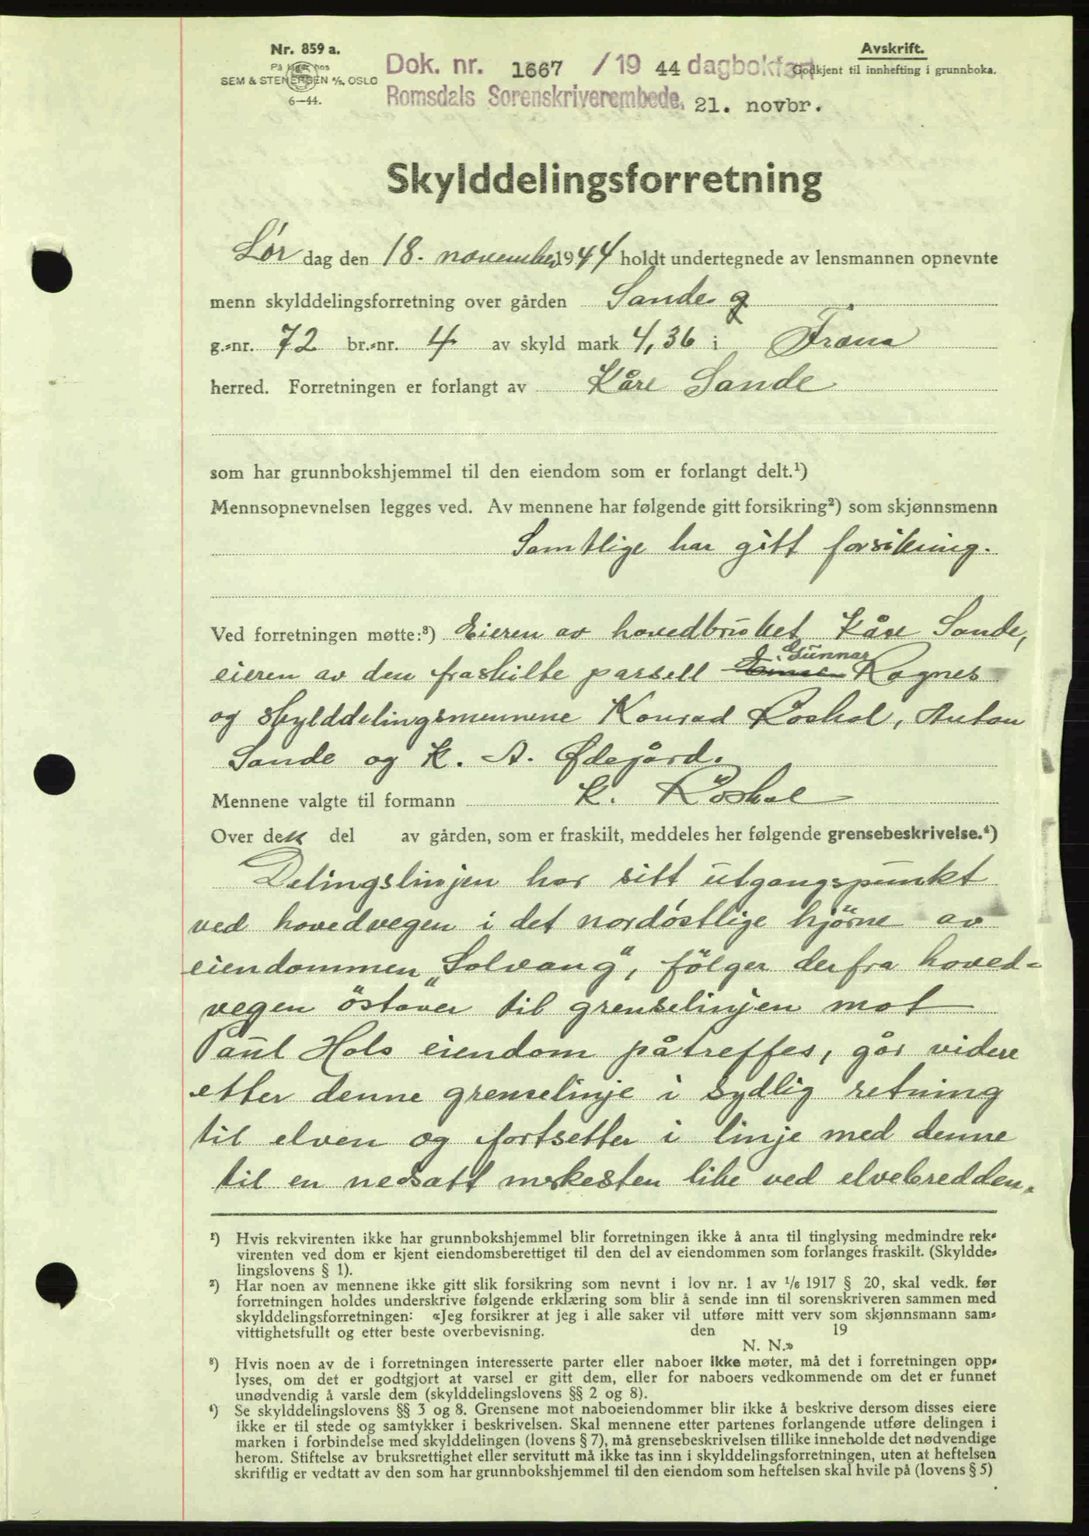 Nr. 859 a.
På lager hos
SEM & STENERSEN A/S, OSLO
6—44.
Dok. nr. 1667 /19 44 dagbokført
Romsdals Sorenskriverembede, 21. novbr.
Avskrift.
Godkjent til innhefting i grunnboka.
Skylddelingsforretning
Lør dag den 18. november 1944 holdt undertegnede av lensmannen opnevnte
menn skylddelingsforretning over gården Sande
g.-nr. 72 br.-nr. 4 av skyld mark 4,36 i Fræna
herred. Forretningen er forlangt av Kåre Sande
som har grunnbokshjemmel til den eiendom som er forlangt delt.¹)
Mennsopnevnelsen legges ved. Av mennene har følgende gitt forsikring²) som skjønnsmenn
Samtlige har gitt forsikring.
Ved forretningen møtte:³) Eieren av hovedbruket Kåre Sande,
eieren av den fraskilte parsell Gunnar Ragnes
og skylddelingsmennene Konrad Röshol, Anton
Sande og K. A. Ødegård.
Mennene valgte til formann K. Röshol
Over den del av gården, som er fraskilt, meddeles her følgende grensebeskrivelse.⁴)
Delingslinjen har sitt utgangspunkt
ved hovedvegen i det nordöstlige hjörne av
eiendommen „Solvang", fölger derfra hoved-
vegen östover til grenselinjen mot
Paul Hols eiendom påtreffes, går videre
etter denne grenselinje i sydlig retning
til elven og fortsetter i linje med denne
til en nedsatt merkesten like ved elvebredden.
¹) Hvis rekvirenten ikke har grunnbokshjemmel blir forretningen ikke å anta til tinglysing medmindre rek-
virenten ved dom er kjent eiendomsberettiget til den del av eiendommen som forlanges fraskilt. (Skyldde-
lingslovens § 1).
²) Har noen av mennene ikke gitt slik forsikring som nevnt i lov nr. 1 av 1/6 1917 § 20, skal vedk. før
forretningen holdes underskrive følgende erklæring som blir å sende inn til sorenskriveren sammen med
skylddelingsforretningen: «Jeg forsikrer at jeg i alle saker vil utføre mitt verv som skjønnsmann sam-
vittighetsfullt og etter beste overbevisning. den 19
N. N.»
³) Hvis noen av de i forretningen interesserte parter eller naboer ikke møter, må det i forretningen opp-
lyses, om det er godtgjort at varsel er gitt dem, eller for naboers vedkommende om det er funnet
unødvendig å varsle dem (skylddelingslovens §§ 2 og 8).
⁴) Se skylddelingslovens §§ 3 og 8. Grensene mot naboeiendommer blir ikke å beskrive dersom disses eiere
ikke er til stede og samtykker i beskrivelsen. Skal mennene etter partenes forlangende utføre delingen i
marken i forbindelse med skylddelingen (lovens § 7), må grensebeskrivelsen tillike inneholde det nødvendige
herom. Stiftelse av bruksrettighet eller servitutt må ikke tas inn i skylddelingsforretningen, uten at heftelsen
skriftlig er vedtatt av den som har grunnbokshjemmel til den eiendom som heftelsen skal hvile på (lovens § 5)